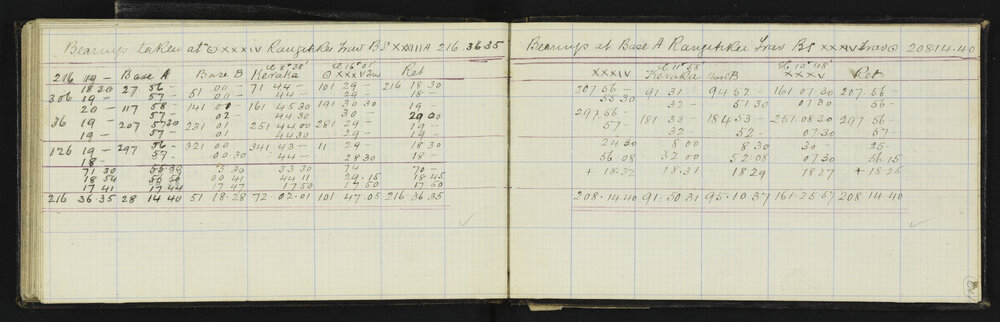 Bearings taken at ⊙ XXXIV Rangitikei Trav BS XXXIIIA 216 36 35
el 8°38' el 16°01'
216 19 — Base A Base B Keraka ⊙ XXXV Trav Ret
18 30 27 56 — 51 00 — 71 44 — 101 29 — 216 18 30
306 19 — 57 — 00 — 44 — 29 — 18 —
20 — 117 58 — 141 01 161 45 30 191 30 30 19 —
36 19 — 57 — 02 — 44 30 30 — 20 00
19 — 207 57 30 231 01 251 44 00 281 29 — 19 —
19 — 57 — 01 44 30 29 — 19 —
126 19 — 297 56 — 321 00 341 43 — 11 29 — 18 30
18 — 57 — 00 30 44 — 28 30 18 —
71 30 3 30 33 30 74 70 —
18 54 56 56 00 41 44 11 29.15 18 45
17 41 17 44 17 47 17 50 17 50 17 50
216 36.35 28 14.40 51 18.28 72 02.01 101 47.05 216 36 35
Bearings at Base A Rangitikei Trav BS XXXIV Trav ⊙ 208.14.40
el 11°58' el 13°48'
XXXIV Keraka Base B XXXV Ret
207 56 — 91 31 — 94 52 — 161 01 30 207 56 —
55 30 32 — 51 30 01 30 56 —
297 56 — 181 33 — 184 53 — 251 08 30 297 56 —
57 — 32 — 52 — 07 30 57 —
24 30 8 00 8 30 30 — 25 —
56 08 32 00 52.08 07 30 56.15
+ 18.32 18.31 18 29 18 27 + 18 25
208.14.40 91.50 31 95.10 37 161.25.57 208 14.40